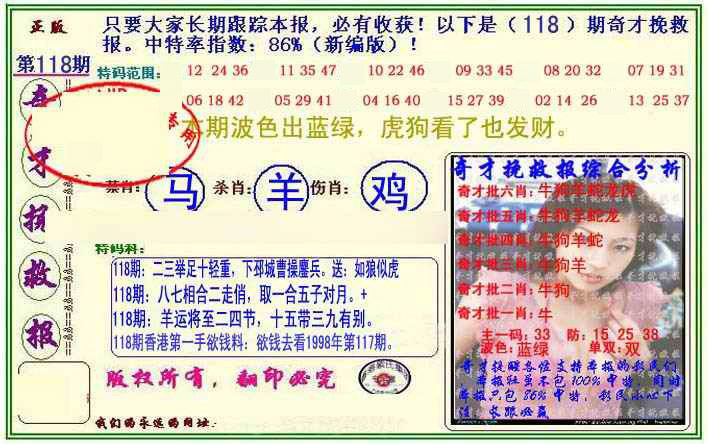 正版
只要大家长期跟踪本报，必有收获！以下是（118）期奇才挽救
报。中特率指数：86%（新编版）！
第118期
特码范围：
12 24 36 11 35 47 10 22 46 09 33 45 08 20 32 07 19 31
06 18 42 05 29 41 04 16 40 15 27 39 02 14 26 13 25 37
本期波色出蓝绿，虎狗看了也发财。
奇
才
挽
救
报
禁肖：马 杀肖：羊 伤肖：鸡
特码料：
118期：二三举足十轻重，下邳城曹操鏖兵。送：如狼似虎
118期：八七相合二走俏，取一合五子对月。+
118期：羊运将至二四节，十五带三九有别。
118期香港第一手欲钱料：欲钱去看1998年第117期。
版权所有，翻印必究
我们的永远的网址：
奇才挽救报综合分析
奇才批六肖：牛狗羊蛇龙虎
奇才批五肖：牛狗羊蛇龙
奇才批四肖：牛狗羊蛇
奇才批三肖：牛狗羊
奇才批二肖：牛狗
奇才批一肖：牛
主一码：33 防：15 25 38
波色：蓝绿 单双：双
奇才提醒各位支持本报的彩民们
本报社虽不包100%中特，但对
本报只包86%中特，彩民小心下
注，长跟必赢